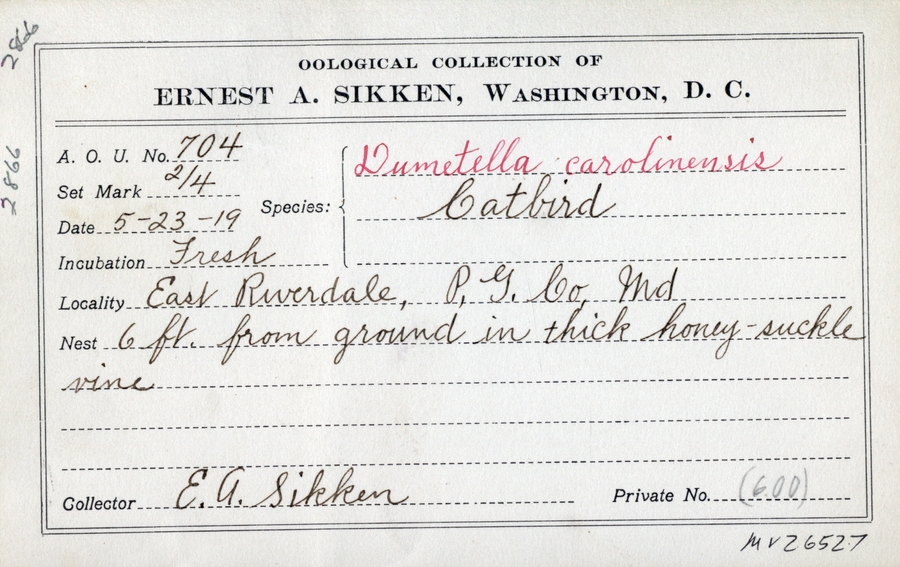 2866
2866
OOLOGICAL COLLECTION OF
ERNEST A. SIKKEN, WASHINGTON, D. C.
A. O. U. No. 704
Set Mark 2/4
Date 5-23-19
Incubation Fresh
Species: Dumetella carolinensis
Catbird
Locality East Riverdale, P. G. Co, Md
Nest 6 ft. from ground in thick honey-suckle
vine
Collector E. A. Sikken
Private No. (600)
MV26527